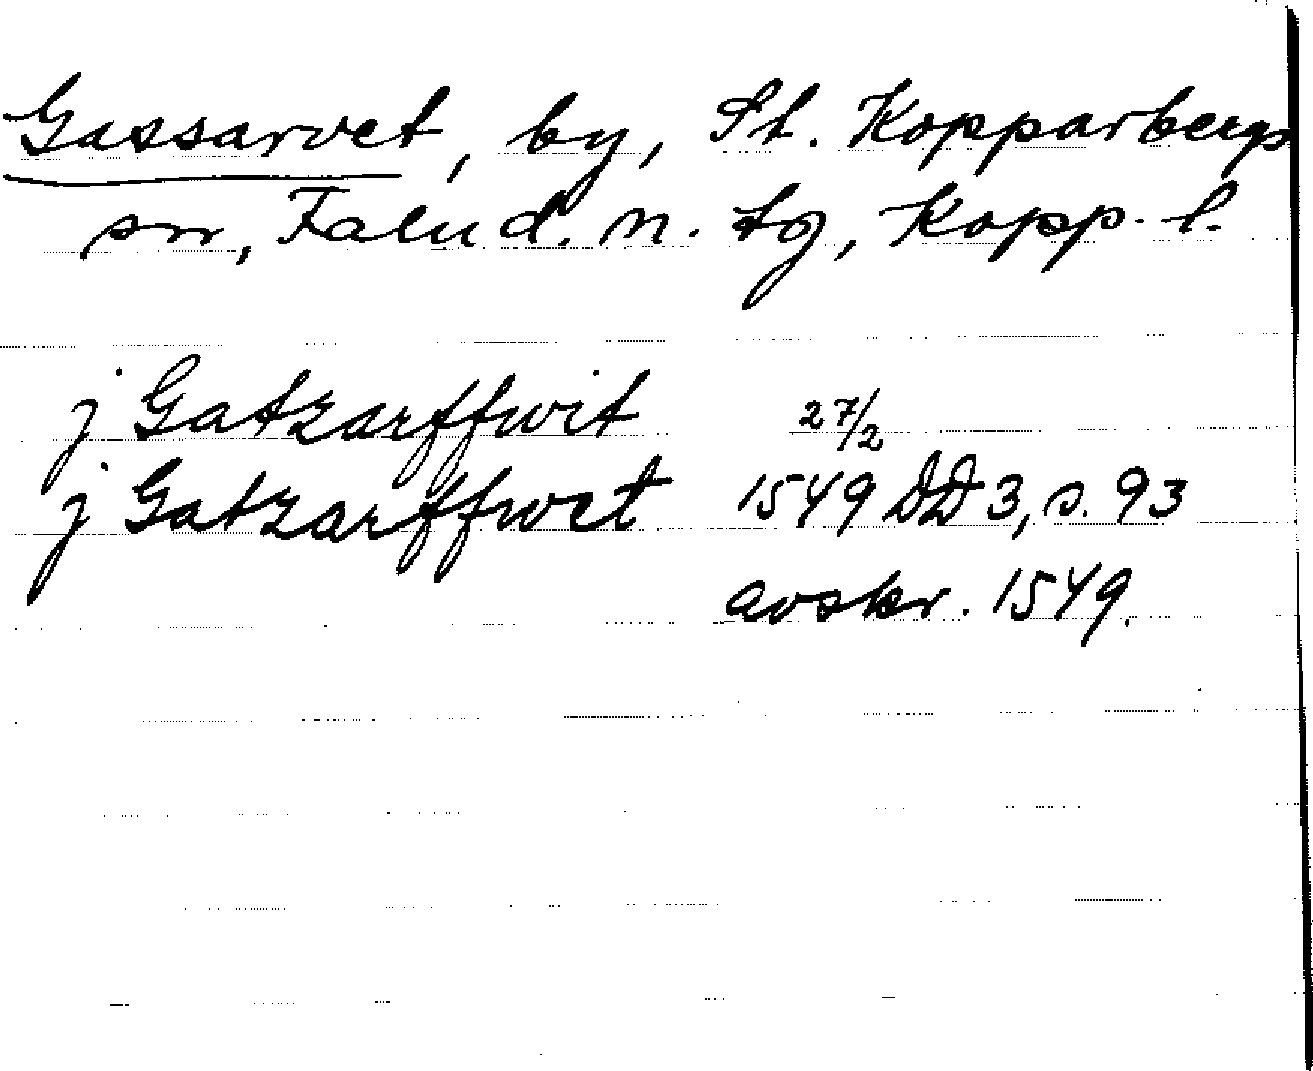 Gassarvet, by, St. Kopparbergs
sn, Falu d. n. tg, Kopp. l.
j Gatzarffwit 27/2
j Gatzarffwet 1549 DD 3, s. 93
avskr. 1549.